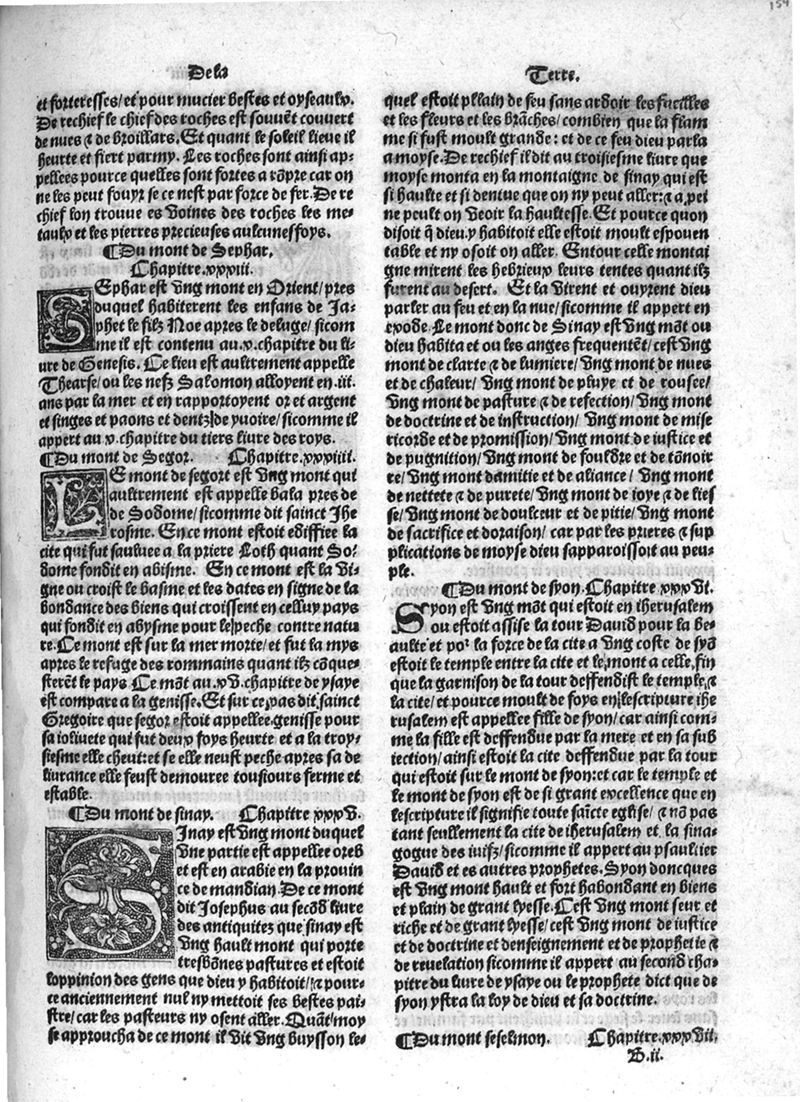 154
De la
Terre.
et forteresses/et pour mucier bestes et oyseaulx.
De rechief le chief des roches est souvēt couvert
de nues ⁊ de broillars. Et quant le soleil lieve il
heurte et fiert parmy. Les roches sont ainsi ap-
pellees pource quelles sont fortes a rōpre car on
ne les peut fouyr se ce nest par force de fer. De re
chief lon trouve es voines des roches les me-
taulx et les pierres precieuses aulcunessfoys.
¶Du mont de Sephar.
Chapitre.xxxiii.
SEphar est ung mont en Orient/pres
duquel habiterent les enfans de Ja-
phet le filz Noe apres le deluge/sicom
me il est contenu au.x.chapitre du li-
ure de Genesis. Ce lieu est aultrement appelle
Thearse/ou les nefz Salomon alloyent en.iii.
ans par la mer et en rapportoyent or et argent
et singes et paons et dentz de yuoire/sicomme il
appert au.x.chapitre du tiers livre des roys.
¶Du mont de Segor. Chapitre.xxxiiii.
LE mont de segort est ung mont qui
aultrement est appelle bala pres de
de Sodome/sicomme dit sainct Jhe
rosme. En ce mont estoit ediffiee la
cite qui fut sauluee a la priere Loth quant So-
dome fondit en abisme. En ce mont est la vi-
gne ou croist le basme et les dates en signe de la
bondance des biens qui croissent en celluy pays
qui fondit en abysme pour le peche contre natu
re. Ce mont est sur la mer morte/et fut la mys
apres le refuge des rommains quant ilz cōque-
sterēt le pays Ce mōt au.xv.chapitre de ysaye
est compare a la genisse. Et sur ce pas dit sainct
Gregoire que segor estoit appellee genisse pour
sa ioliuete qui fut deux foys heurte et a la troy-
siesme elle cheut: et se elle neust peche apres sa de
liurance elle feust demouree tousiours ferme et
estable.
¶Du mont de sinay. Chapitre xxxv.
SInay est ung mont duquel
une partie est appellee oreb
et est en arabie en la prouin
ce de mandian. De ce mont
dit Josephus au secōd livre
des antiquitez que sinay est
ung hault mont qui porte
tresbōnes pastures et estoit
loppinion des gens que dieu y habitoit/⁊ pour-
ce anciennement nul ny mettoit ses bestes pai-
stre/car les pasteurs ny osent aller. Quāt moy
se approucha de ce mont il vit ung buysson le-
quel estoit pllain de feu sans ardoir les fueilles
et les fleurs et les brāches/combien que la flam
me si fust moult grande: et de ce feu dieu parla
a moyse. De rechief il dit au troisiesme livre que
moyse monta en la montaigne de sinay qui est
si haulte et si dentue que on ny peut aller: ⁊ a pei
ne peult on veoir la haultesse. Et pource quon
disoit q̄ dieu y habitoit elle estoit moult espouen
table et ny osoit on aller. Entour celle montai
gne mirent les hebrieux leurs tentes quant ilz
furent au desert. Et la virent et ouyrent dieu
parler au feu et en la nue/sicomme il appert en
exode. Le mont donc de Sinay est ung mōt ou
dieu habita et ou les anges frequentēt/cest ung
mont de clarte ⁊ de lumiere/ung mont de nues
et de chaleur/ung mont de pluye et de rousee/
ung mont de pasture ⁊ de refection/ung mont
de doctrine et de instruction/ung mont de mise
ricorde et de promission/ung mont de iustice et
de pugnition/ung mont de fouldre et de tōnoir
re/ung mont damitie et de aliance/ung mont
de nettete ⁊ de purete/ung mont de ioye ⁊ de lies
se/ung mont de doulceur et de pitie/ung mont
de sacrifice et doraison/car par les prieres ⁊ sup
plications de moyse dieu sapparoissoit au peu-
ple.
¶Du mont de syon. Chapitre xxxvi.
SYon est ung mōt qui estoit en iherusalem
ou estoit assise la tour David pour la be-
aulte et poꝰ la force de la cite a ung coste de syō
estoit le temple entre la cite et le mont a celle fin
que la garnison de la tour deffendist le temple ⁊
la cite/et pource moult de foys en lescripture ihe
rusalem est appellee fille de syon/car ainsi com-
me la fille est deffendue par la mere et en sa sub
iection/ainsi estoit la cite deffendue par la tour
qui estoit sur le mont de syon: et car le temple et
le mont de syon est de si grant excellence que en
lescripture il signifie toute saīcte eglise/⁊ nō pas
tant seullement la cite de iherusalem et la sina-
gogue des iuifz/sicomme il appert au psaultier
David et es autres prophetes. Syon doncques
est ung mont hault et fort habondant en biens
et plain de grant lyesse. Cest ung mont seur et
riche et de grant lyesse/cest ung mont de iustice
et de doctrine et denseignement et de prophetie ⁊
de revelation sicomme il appert au second cha-
pitre du livre de ysaye ou le prophete dict que de
syon ystra la loy de dieu et sa doctrine.
¶Du mont seselmon. Chapitre.xxxvii.
B.ii.